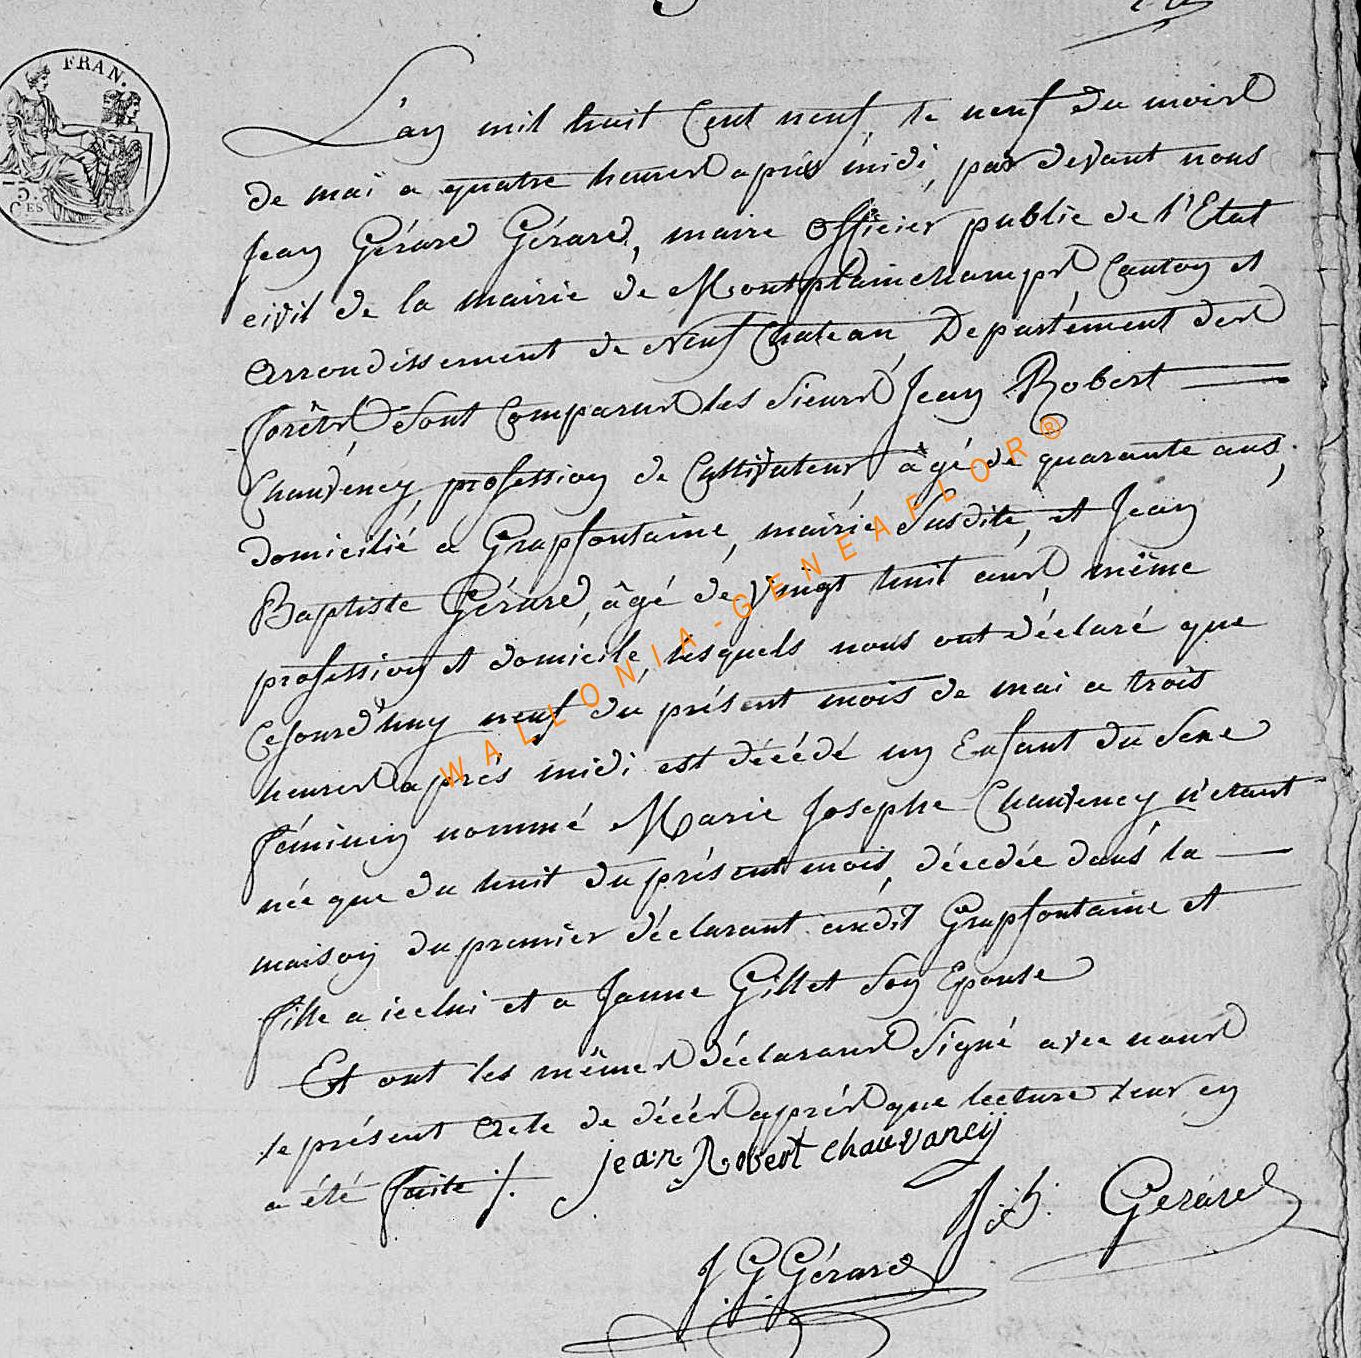 FRAN.
75.
CES
L'an mil huit Cent neuf, le neuf du mois
de mai a quatre heures après midi, par devant nous
Jean Gérard Gérard, maire officier public de l'Etat
civil de la mairie de Montplainchamps Canton et
Arrondissement de Neuf Chateau, Departément des
forêts Sont Comparus les Sieurs Jean Robert
Chauvency, profession de Cultivateur âgé de quarante ans,
domicilié a Grapfontaine, mairie Susdite, et Jean
Baptiste Gérard, âgé de vingt huit ans même
profession et domicile, lesquels nous ont déclaré que
Cejourd'huy neuf du présent mois de mai a trois
heures après midi est décédé un Enfant du Sexe
féminin nommé Marie Josephe Chauvency n'etant
née que du huit du présent mois, décedée dans la
maison du premier déclarant audit Grapfontaine et
fille a icelui et a Janne Gillet Son Epouse
Et ont les mêmes déclarans Signé avec nous
le présent acte de décés après que lecture leur en
a été faite ./.
jean Robert chauvancÿ
J: b: Gerard
J. G. Gérard
WALLONIA-GENEAFLOR®